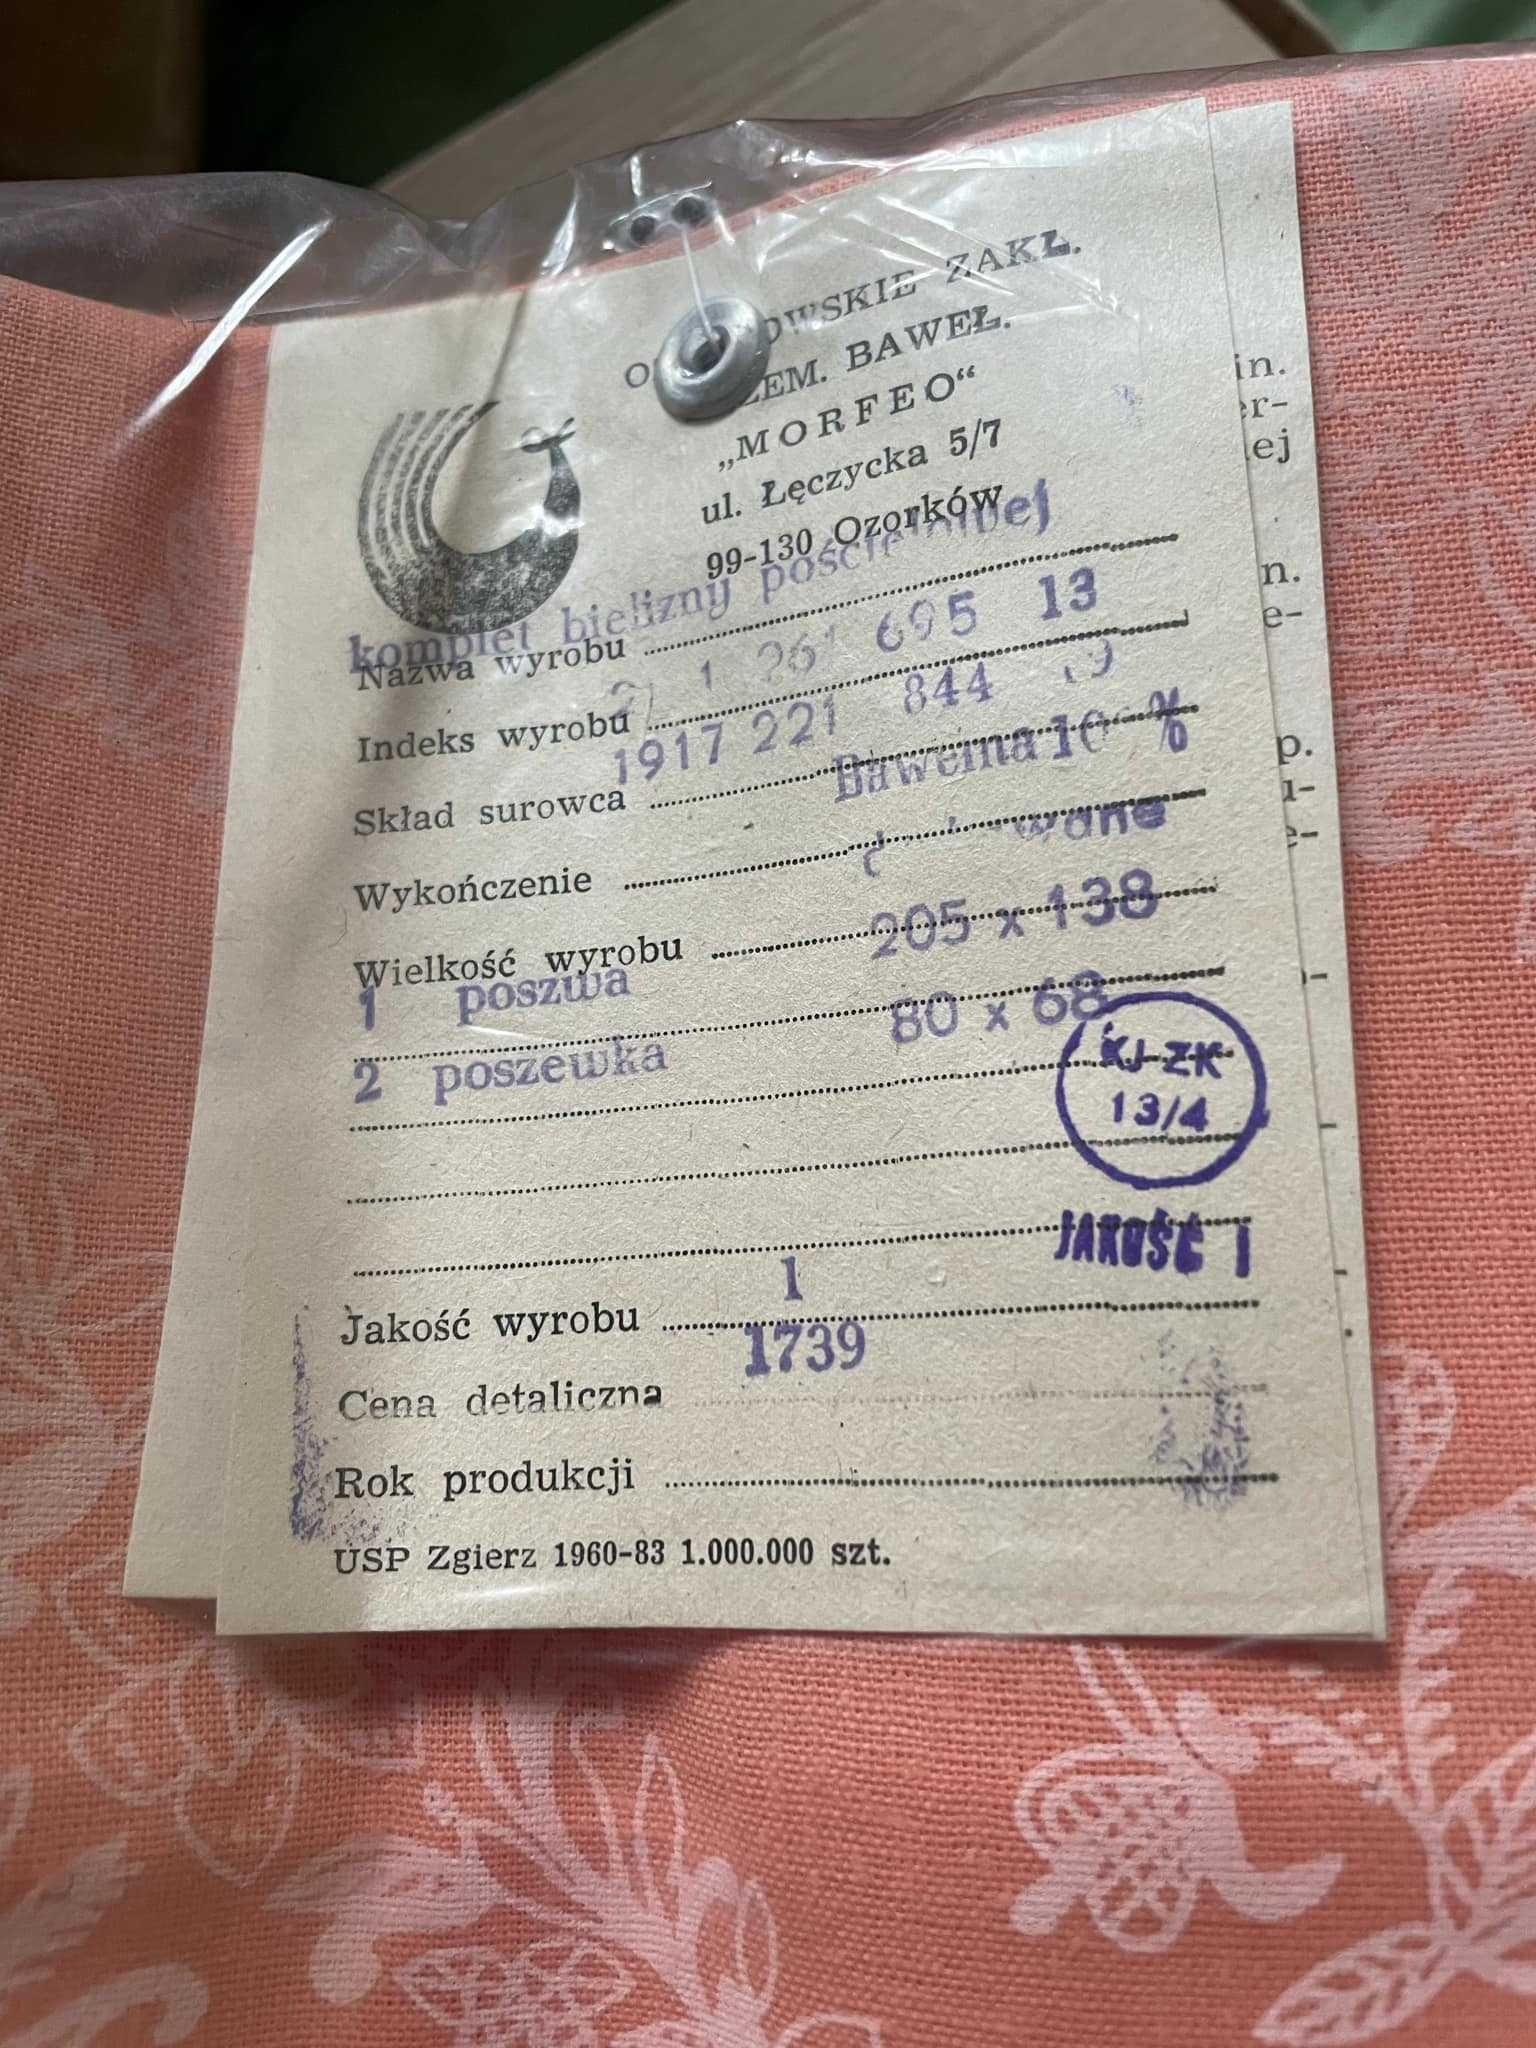 ZAKŁ.
BAWEŁ.
„MORFEO“
ul. Łęczycka 5/7
99-130 Ozorków
komplet bielizny pościelowej
Nazwa wyrobu
1 261 695 13
Indeks wyrobu
1917 221 844
Skład surowca Bawełna
%
Wykończenie
Wielkość wyrobu 205 x 138
1 poszwa
80 x 68
2 poszewka
KJ-ZK
13/4
JAKOŚĆ I
Jakość wyrobu 1
1739
Cena detaliczna
Rok produkcji
USP Zgierz 1960-83 1.000.000 szt.
in.
er-
ej
n.
e-
p.